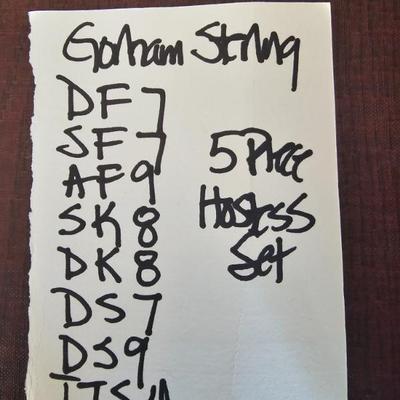 Gorham Sterling
DF 7
SF 7
AF 9
SK 8
DK 8
DS 7
DS 9
5 Piece
Hostess
Set